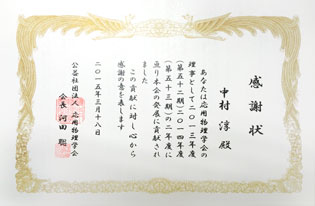 感謝状
中村 淳 殿
あなたは応用物理学会の
理事として二〇一三年度
(第五十二期)二〇一四年度
(第五十三期)の二年度に
亘り本会の発展に貢献され
ました
この貢献に対し心から
感謝の意を表します
二〇一五年三月十八日
公益社団法人 応用物理学会
会長 河田 聡